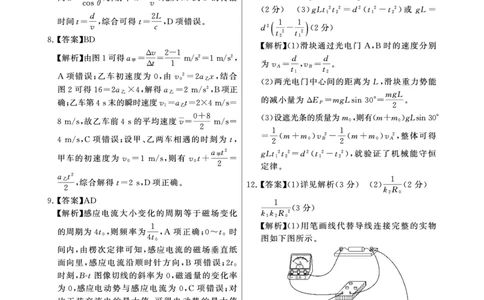 cos θ
时间 t=d/v,综合可得 t=2L/c,D项错误。
8.【答案】BD
【解析】由图1可得 a甲=Δv/Δt=(2-1)/1 m/s²=1 m/s²,
A项错误;乙车初速度为0,由 v₀²=2a乙x,结合
图2可得16=2a乙×4,解得 a乙=2 m/s²,B项正
确;乙车第4 s末的瞬时速度 v₁=a乙t=2×4 m/s=
8 m/s,故乙车前4 s的平均速度 v̄=(0+8)/2 m/s=
4 m/s,C项错误;设甲、乙两车相遇的时刻为 t,
甲车的初速度为 v₀=1 m/s,则有 v₀t+a甲t²/2=
a乙t²/2,综合解得 t=2 s,D项正确。
9.【答案】AD
【解析】感应电流大小变化的周期等于磁场变化
的周期为4t₀,则频率为1/4t₀,A项正确;0~t₀时
间内,由楞次定律可知,感应电流的磁场垂直纸
面向里,感应电流沿顺时针方向,B项错误;2t₀
时刻,B-t图像切线的斜率为0,磁通量的变化率
为0,感应电动势与感应电流为0,C项错误;对
(2分) (3)gLt₁²t₂²=d²(t₁²-t₂²)或 gL=
d²(1/t₂²-1/t₁²)(2分)
【解析】(1)滑块通过光电门A、B时的速度分别
为 vA=d/t₁,vB=d/t₂。
(2)两光电门中心间的距离为L,滑块重力势能
的减小量为ΔEP=mgLsin 30°=mgL/2。
(3)设遮光条的质量为m₀,则有(m+m₀)gLsin 30°
=1/2(m+m₀)vB²-1/2(m+m₀)vA²,整体可得
gLt₁²t₂²=d²(t₁²-t₂²),就验证了机械能守恒
定律。
12.【答案】(1)详见解析(3分) (2)1/k₁R₀(2分)
1/k₁k₂R₀²(3分)
【解析】(1)用笔画线代替导线连接完整的实物
图如下图所示。